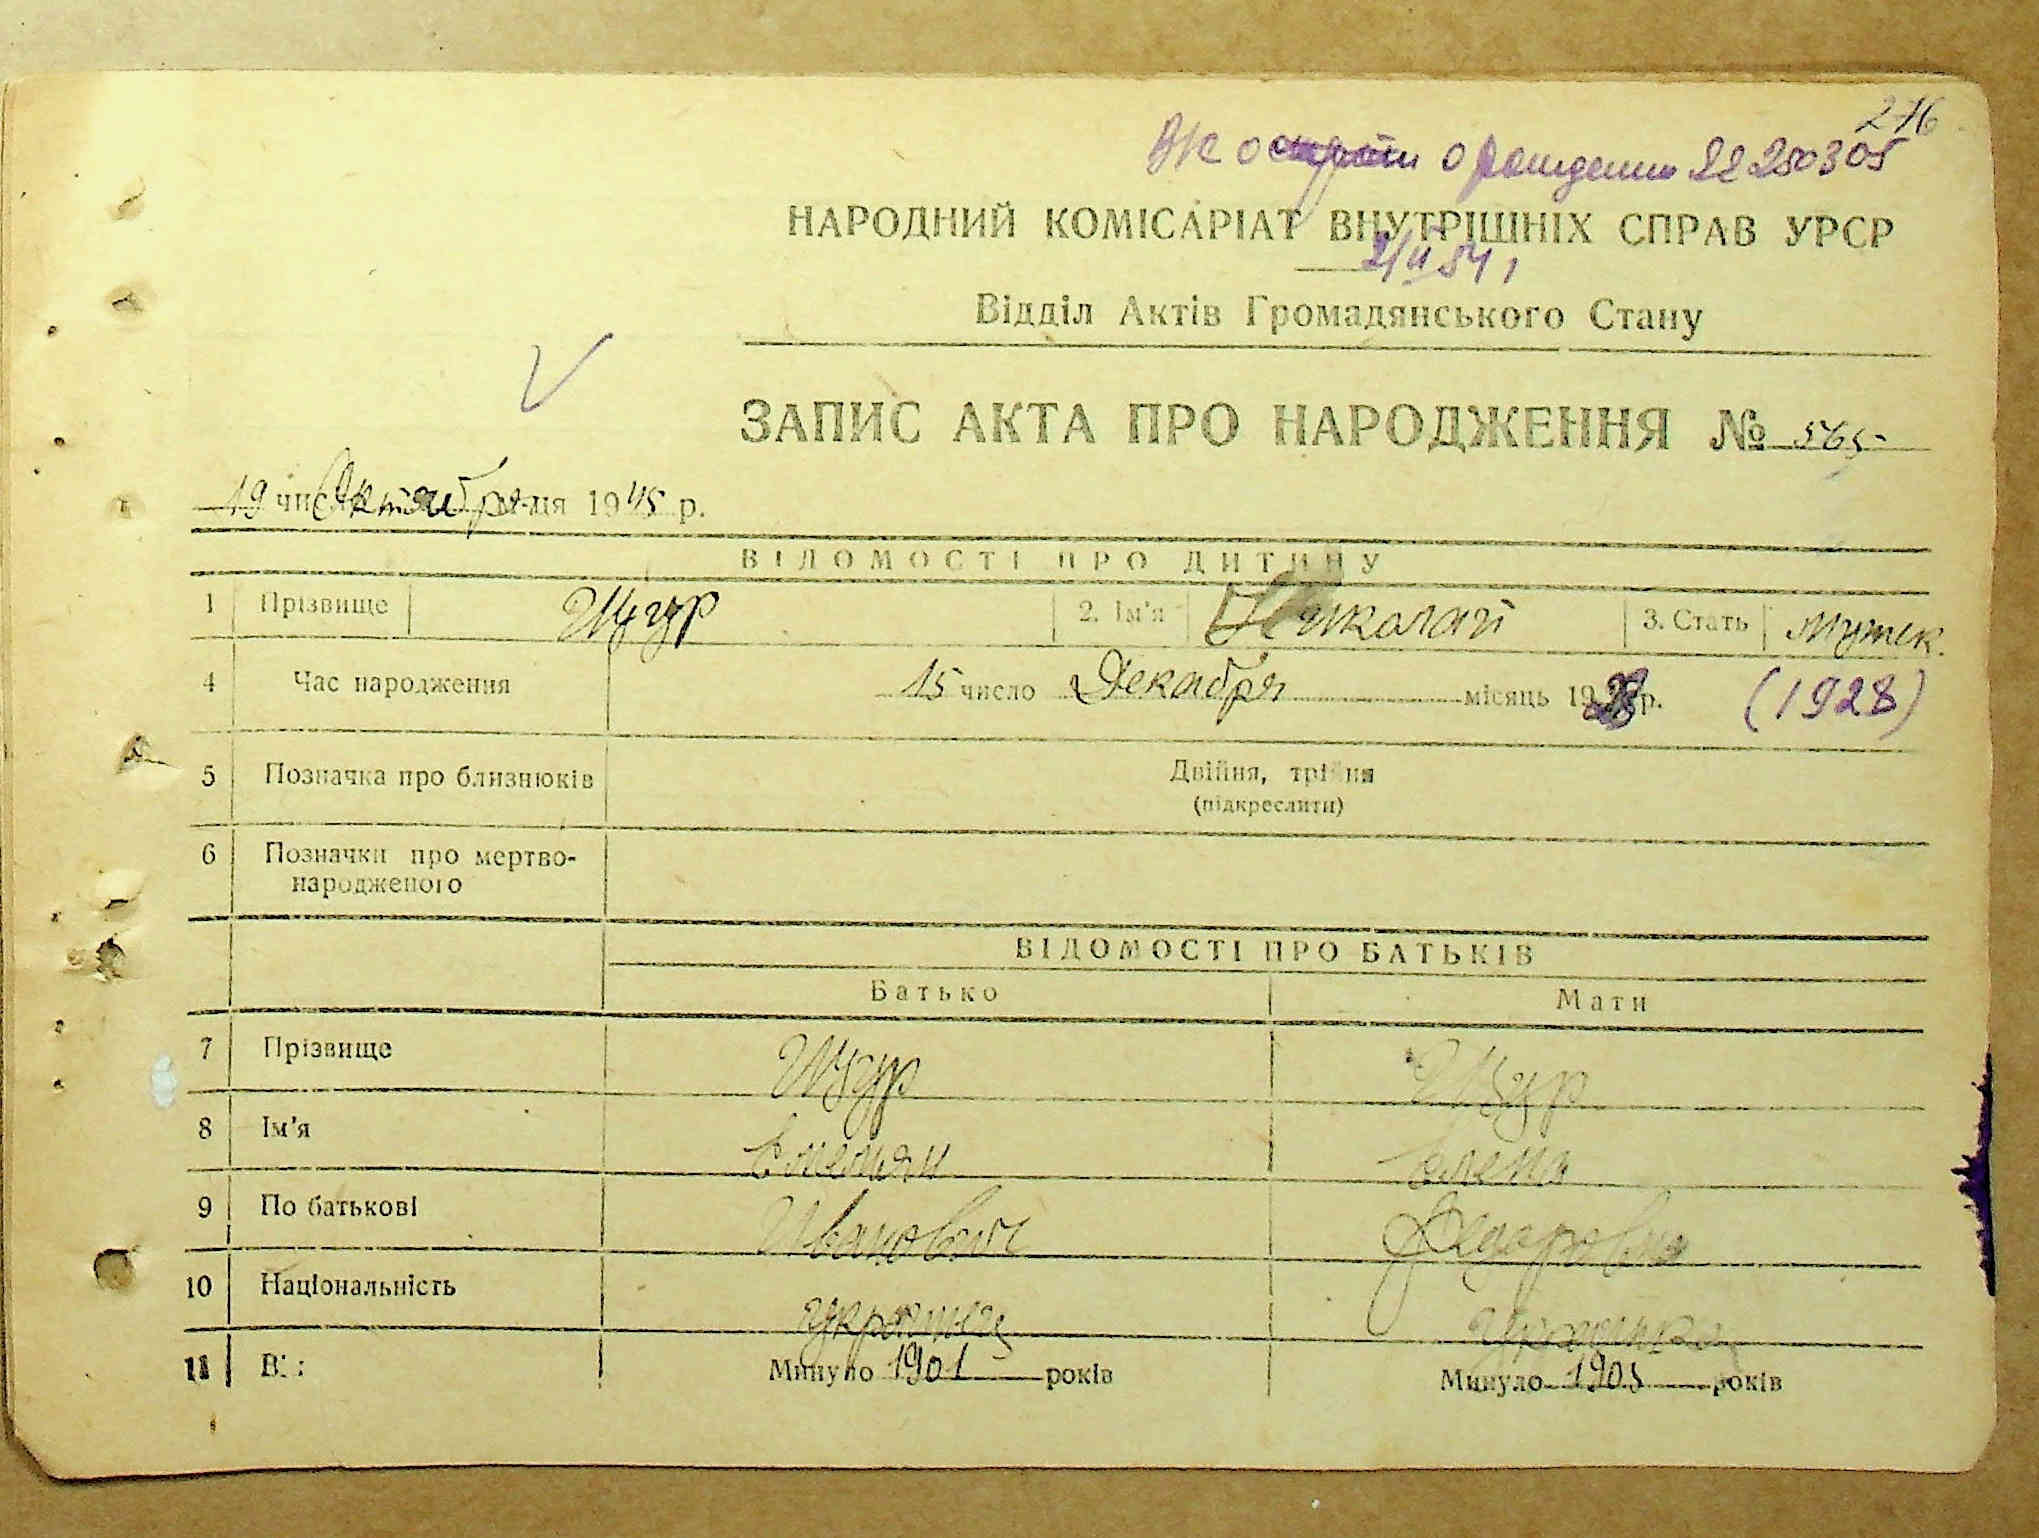 276
о рождении 22 250305
НАРОДНИЙ КОМІСАРІАТ ВНУТРІШНІХ СПРАВ УРСР
2/II 54 г
Відділ Актів Громадянського Стану
ЗАПИС АКТА ПРО НАРОДЖЕННЯ № 565
19 Октября 1945 р.
ВІДОМОСТІ ПРО ДИТИНУ
1 Прізвище Щур 2. Ім'я Николай 3. Стать мужск.
4 Час народження 15 число Декабря місяць 1928 р. (1928)
5 Позначка про близнюків Двійня, трійня
(підкреслити)
6 Позначки про мертво-
народженого
ВІДОМОСТІ ПРО БАТЬКІВ
Батько Мати
7 Прізвище Щур Щур
8 Ім'я Емельян Елена
9 По батькові Иванович Федоровна
10 Національність украинец украинка
11 Ві: Минуло 1901 років Минуло 1905 років